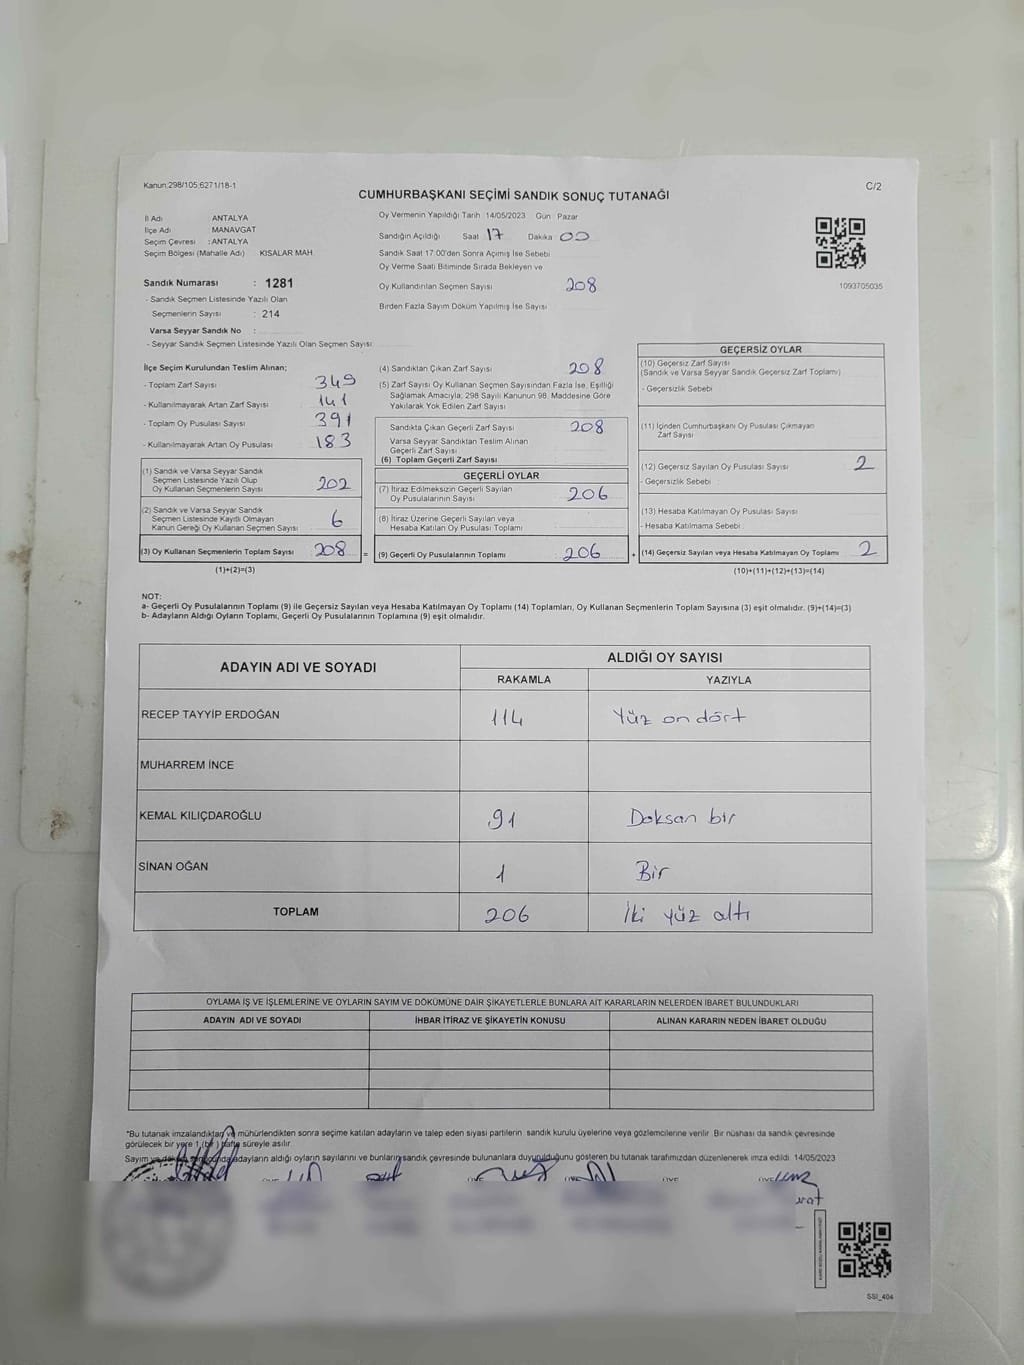 Kanun:298/105;6271/18-1
C/2
CUMHURBAŞKANI SEÇİMİ SANDIK SONUÇ TUTANAĞI
İl Adı ANTALYA
İlçe Adı MANAVGAT
Seçim Çevresi : ANTALYA
Seçim Bölgesi (Mahalle Adı) KISALAR MAH.
Sandık Numarası : 1281
- Sandık Seçmen Listesinde Yazılı Olan
Seçmenlerin Sayısı : 214
Varsa Seyyar Sandık No :
- Seyyar Sandık Seçmen Listesinde Yazılı Olan Seçmen Sayısı:
Oy Vermenin Yapıldığı Tarih 14/05/2023 Gün : Pazar
Sandığın Açıldığı Saat 17 Dakika 00
Sandık Saat 17:00'den Sonra Açımış İse Sebebi
Oy Verme Saati Bitiminde Sırada Bekleyen ve
Oy Kullandırılan Seçmen Sayısı 208
Birden Fazla Sayım Döküm Yapılmış İse Sayısı
1093705035
İlçe Seçim Kurulundan Teslim Alınan;
- Toplam Zarf Sayısı 349
- Kullanılmayarak Artan Zarf Sayısı 141
- Toplam Oy Pusulası Sayısı 391
- Kullanılmayarak Artan Oy Pusulası 183
(1) Sandık ve Varsa Seyyar Sandık
Seçmen Listesinde Yazılı Olup
Oy Kullanan Seçmenlerin Sayısı 202
(2) Sandık ve Varsa Seyyar Sandık
Seçmen Listesinde Kayıtlı Olmayan
Kanun Gereği Oy Kullanan Seçmen Sayısı 6
(3) Oy Kullanan Seçmenlerin Toplam Sayısı 208 =
(1)+(2)=(3)
(4) Sandıktan Çıkan Zarf Sayısı 208
(5) Zarf Sayısı Oy Kullanan Seçmen Sayısından Fazla İse, Eşitliği
Sağlamak Amacıyla; 298 Sayılı Kanunun 98. Maddesine Göre
Yakılarak Yok Edilen Zarf Sayısı
Sandıkta Çıkan Geçerli Zarf Sayısı 208
Varsa Seyyar Sandıktan Teslim Alınan
Geçerli Zarf Sayısı
(6) Toplam Geçerli Zarf Sayısı
GEÇERLİ OYLAR
(7) İtiraz Edilmeksizin Geçerli Sayılan
Oy Pusulalarının Sayısı 206
(8) İtiraz Üzerine Geçerli Sayılan veya
Hesaba Katılan Oy Pusulası Toplamı
(9) Geçerli Oy Pusulalarının Toplamı 206 +
GEÇERSİZ OYLAR
(10) Geçersiz Zarf Sayısı
(Sandık ve Varsa Seyyar Sandık Geçersiz Zarf Toplamı)
- Geçersizlik Sebebi
(11) İçinden Cumhurbaşkanı Oy Pusulası Çıkmayan
Zarf Sayısı
(12) Geçersiz Sayılan Oy Pusulası Sayısı 2
- Geçersizlik Sebebi
(13) Hesaba Katılmayan Oy Pusulası Sayısı
- Hesaba Katılmama Sebebi
(14) Geçersiz Sayılan veya Hesaba Katılmayan Oy Toplamı 2
(10)+(11)+(12)+(13)=(14)
NOT:
a- Geçerli Oy Pusulalarının Toplamı (9) ile Geçersiz Sayılan veya Hesaba Katılmayan Oy Toplamı (14) Toplamları, Oy Kullanan Seçmenlerin Toplam Sayısına (3) eşit olmalıdır. (9)+(14)=(3)
b- Adayların Aldığı Oyların Toplamı, Geçerli Oy Pusulalarının Toplamına (9) eşit olmalıdır.
ADAYIN ADI VE SOYADI ALDIĞI OY SAYISI
RAKAMLA YAZIYLA
RECEP TAYYİP ERDOĞAN 114 Yüz on dört
MUHARREM İNCE
KEMAL KILIÇDAROĞLU 91 Doksan bir
SİNAN OĞAN 1 Bir
TOPLAM 206 İki yüz altı
OYLAMA İŞ VE İŞLEMLERİNE VE OYLARIN SAYIM VE DÖKÜMÜNE DAİR ŞİKAYETLERLE BUNLARA AİT KARARLARIN NELERDEN İBARET BULUNDUKLARI
ADAYIN ADI VE SOYADI İHBAR İTİRAZ VE ŞİKAYETİN KONUSU ALINAN KARARIN NEDEN İBARET OLDUĞU
*Bu tutanak imzalandıktan ve mühürlendikten sonra seçime katılan adayların ve talep eden siyasi partilerin sandık kurulu üyelerine veya gözlemcilerine verilir. Bir nüshası da sandık çevresinde
görülecek bir yere 1 (bir) hafta süreyle asılır.
Sayım ve döküm sonucunda adayların aldığı oyların sayılarını ve bunların sandık çevresinde bulunanlara duyurulduğunu gösteren bu tutanak tarafımızdan düzenlenerek imza edildi. 14/05/2023
SSI_404